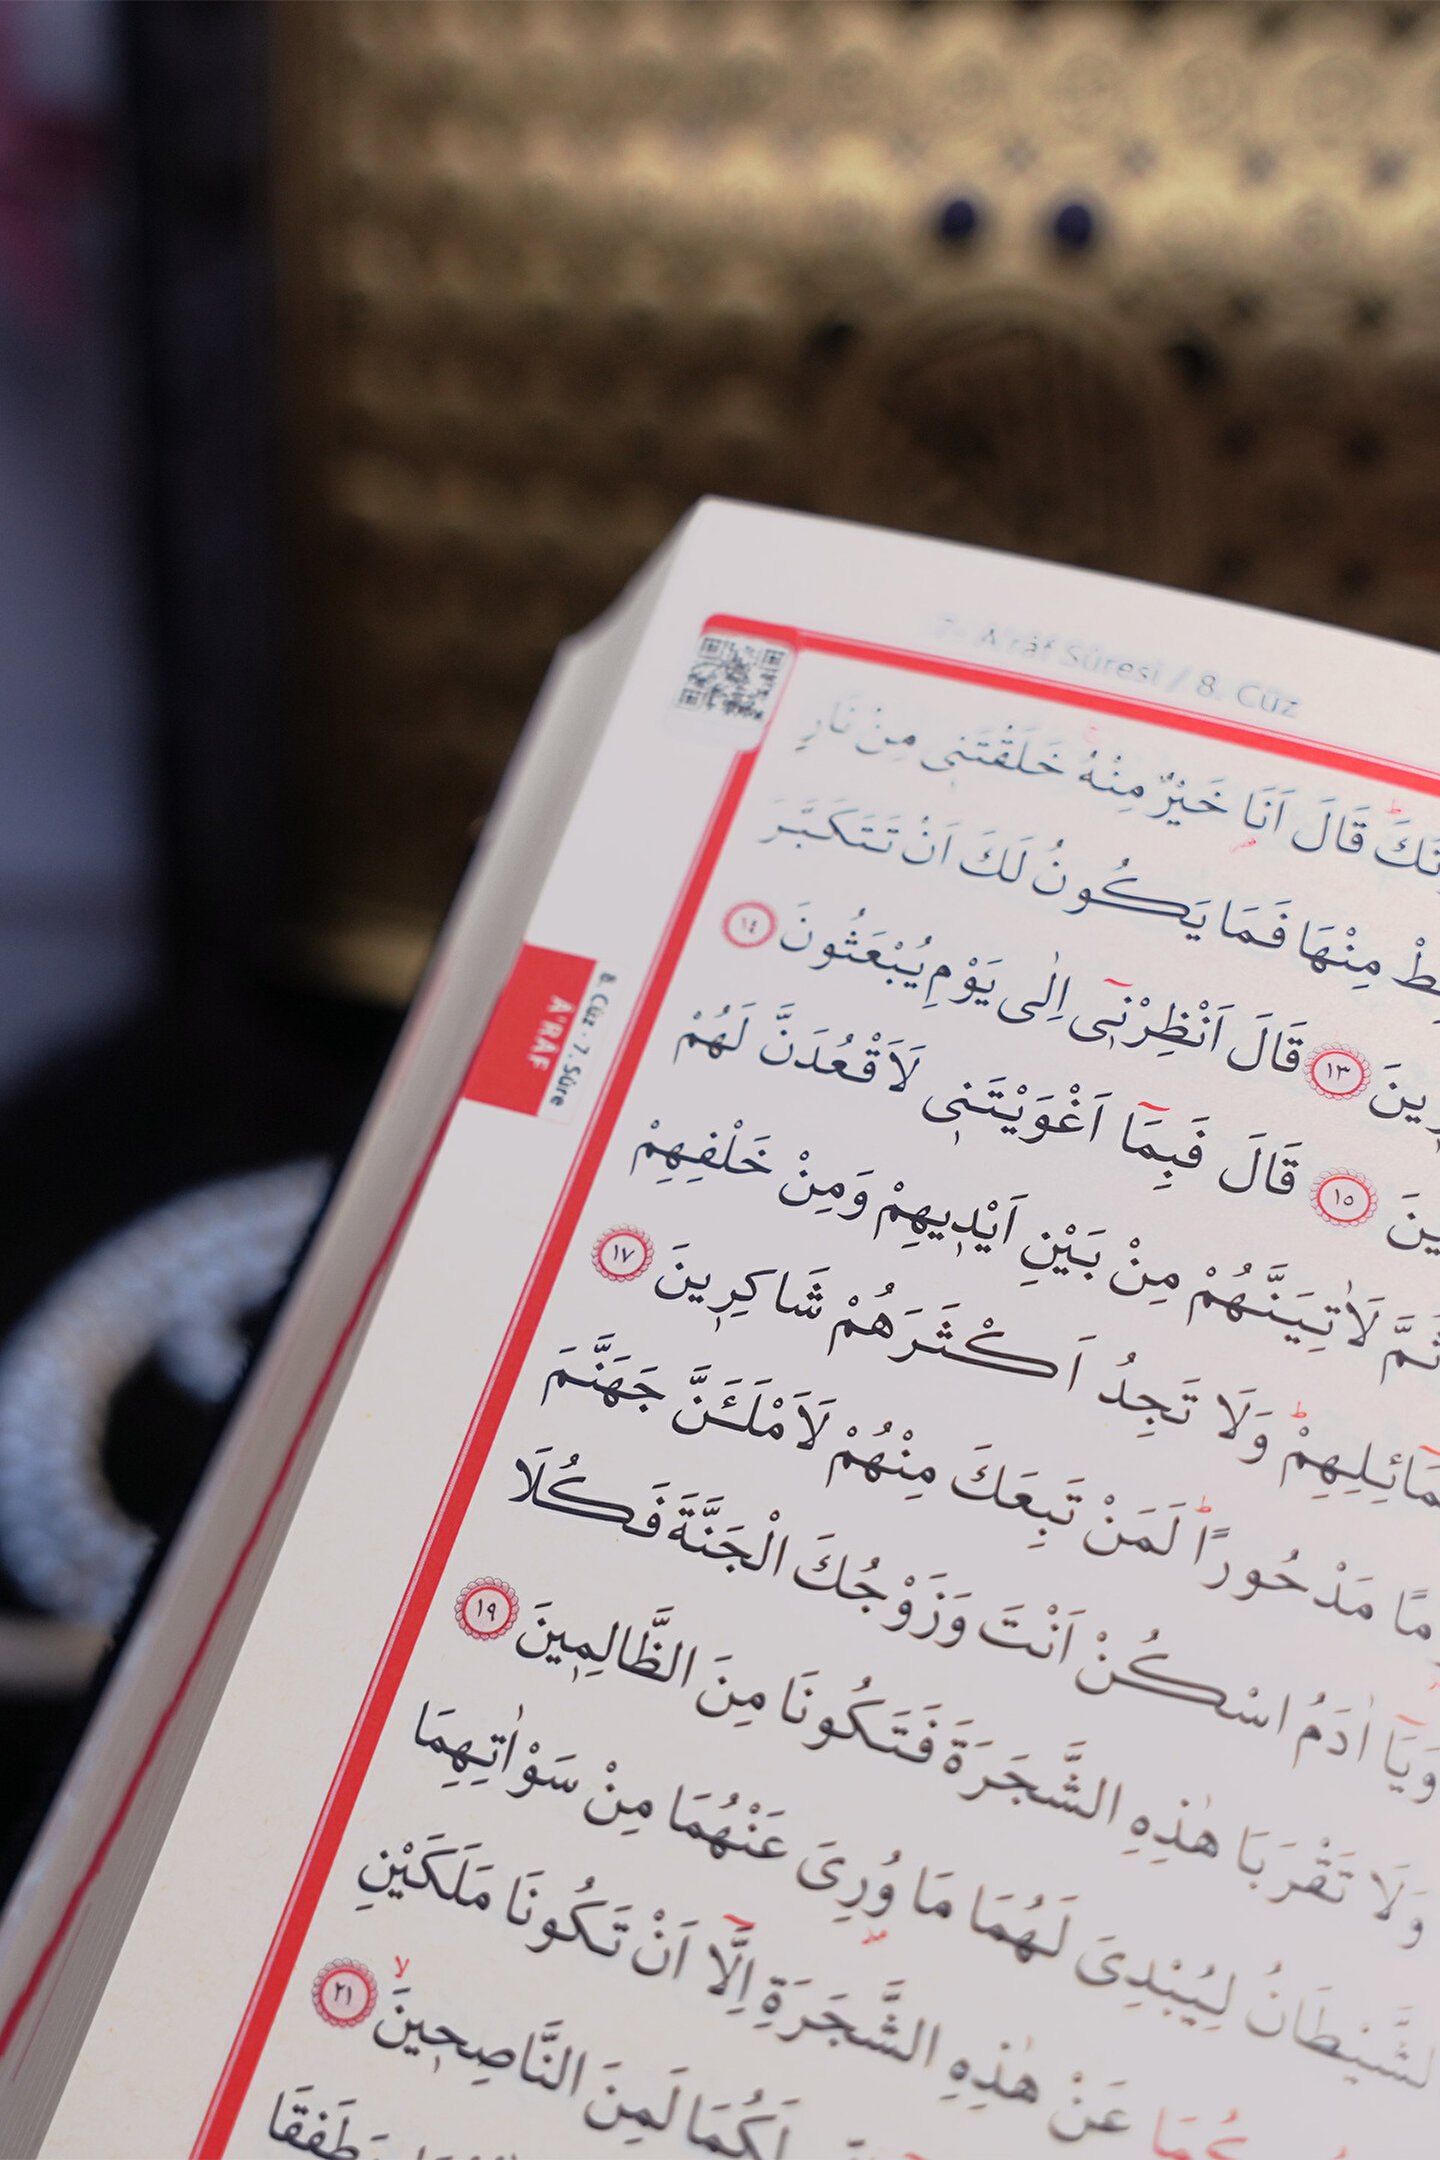 7- A'râf Sûresi / 8. Cüz
قَالَ اَنَا۬ خَيْرٌ مِنْهُ خَلَقْتَنٖي مِنْ نَارٍ
مِنْهَا فَمَا يَكُونُ لَكَ اَنْ تَتَكَبَّرَ
١٣ قَالَ اَنْظِرْنٖٓي اِلٰى يَوْمِ يُبْعَثُونَ ١٤
١٥ قَالَ فَبِمَٓا اَغْوَيْتَنٖي لَاَقْعُدَنَّ لَهُمْ
ثُمَّ لَاٰتِيَنَّهُمْ مِنْ بَيْنِ اَيْدٖيهِمْ وَمِنْ خَلْفِهِمْ
وَلَا تَجِدُ اَكْثَرَهُمْ شَاكِرٖينَ ١٧
مَدْحُورًاؕ لَمَنْ تَبِعَكَ مِنْهُمْ لَاَمْلَـَٔنَّ جَهَنَّمَ
وَيَٓا اٰدَمُ اسْكُنْ اَنْتَ وَزَوْجُكَ الْجَنَّةَ فَكُلَا
وَلَا تَقْرَبَا هٰذِهِ الشَّجَرَةَ فَتَكُونَا مِنَ الظَّالِمٖينَ ١٩
الشَّيْطَانُ لِيُبْدِيَ لَهُمَا مَا وُ۫رِيَ عَنْهُمَا مِنْ سَوْاٰتِهِمَا
عَنْ هٰذِهِ الشَّجَرَةِ اِلَّٓا اَنْ تَكُونَا مَلَكَيْنِ
لَكُمَا لَمِنَ النَّاصِحٖينَۙ ٢١
وَطَفِقَا
8. Cüz - 7. Sûre
A'RAF